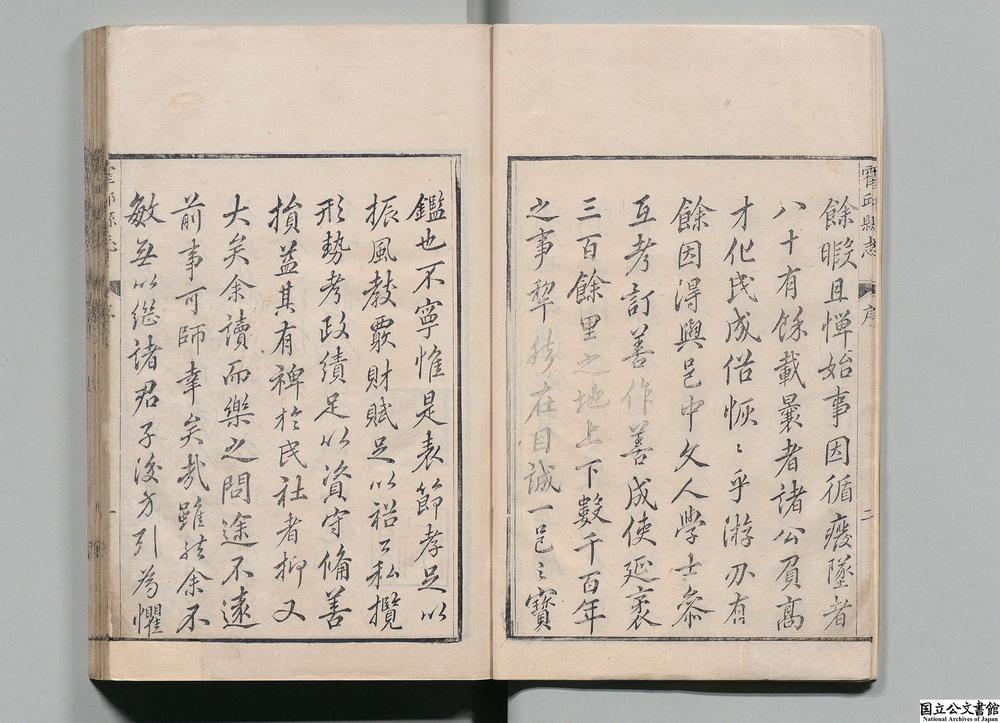 霍邱縣志 序 二
餘暇且憚始事因循癈墜者
八十有餘載曩者諸公負高
才化民成俗恢〻乎游刃有
餘因得與邑中文人學士叅
互考訂善作善成使延袤
三百餘里之地上下數千百年
之事犂然在目誠一邑之寶
鑑也不寧惟是表節孝足以
振風教覈財賦足以裕公私攬
形勢考政績足以資守備善
損益其有裨於民社者抑又
大矣余讀而樂之問途不遠
前事可師幸矣哉雖然余不
敏無以繼諸君子後方引為懼
国立公文書館
National Archives of Japan